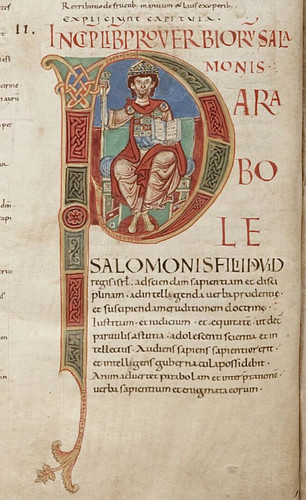 Retribuet de fructu manuum
EXPLICIUNT CAPITULA.
II.
INCIPIT LIB PROVERBIORŪ SALA
MONIS.
PARA
BO
LE
SALOMONIS FILII DAVID
regis isrl. ad sciendam sapientiam et disci
plinam. ad intellegenda verba prudentiae.
et suscipiendam eruditionem doctrine.
Iustitiam. et iudicium. et equitatē. ut detur
parvulis astutia. adolescenti scientia et in
tellectus. Audiens sapiens sapientior erit.
et intellegens gubernacula possidebit.
Animadvertet parabolam et interpretationē.
verba sapientium et enigmata eorum.